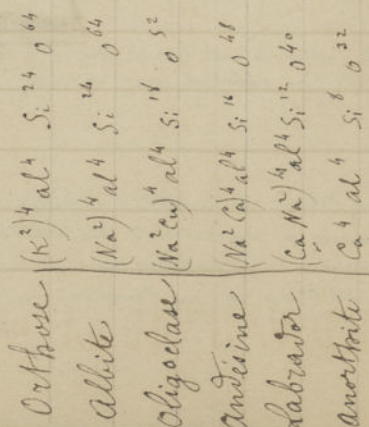 Orthose (K²)⁴ al⁴ Si²⁴ O⁶⁴
albite (Na²)⁴ al⁴ Si²⁴ O⁶⁴
Oligoclase (Na²Ca)⁴ al⁴ Si¹⁸ O⁵²
andésine (Na²Ca)⁴ al⁴ Si¹⁶ O⁴⁸
Labrador (CaNa²)⁴ al⁴ Si¹² O⁴⁰
anorthite Ca⁴ al⁴ Si⁸ O³²